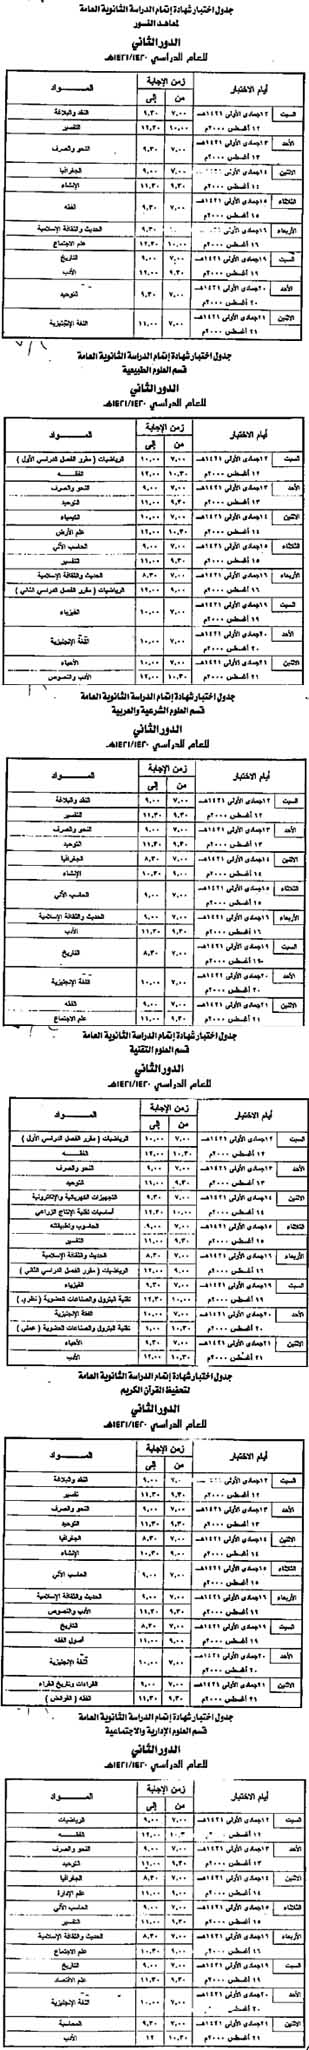 جدول اختبار شهادة إتمام الدراسة الثانوية العامة
لمعاهد النور
الدور الثاني
للعام الدراسي ١٤٢١/١٤٢٠هـ
أيام الاختبار زمن الإجابة المـــواد
من إلى
السبت ١٢جمادى الأولى ١٤٢١هـ ٧,٠٠ ٩,٣٠ النقد والبلاغة
١٢ أغسطس ٢٠٠٠م ١٠,٠٠ ١٢,٣٠ التفسير
الأحد ١٣جمادى الأولى ١٤٢١هـ ٧,٠٠ ٩,٣٠ النحو والصرف
١٣ أغسطس ٢٠٠٠م
الاثنين ١٤جمادى الأولى ١٤٢١هـ ٧,٠٠ ٩,٠٠ الجغرافيا
١٤ أغسطس ٢٠٠٠م ٩,٣٠ ١١,٣٠ الإنشاء
الثلاثاء ١٥جمادى الأولى ١٤٢١هـ ٧,٠٠ ٩,٣٠ الفقه
١٥ أغسطس ٢٠٠٠م
الأربعاء ١٦جمادى الأولى ١٤٢١هـ ٩,٣٠ الحديث والثقافة الإسلامية
١٦ أغسطس ٢٠٠٠م ١٠,٠٠ ١٢,٣٠ علم الاجتماع
السبت ١٩جمادى الأولى ١٤٢١هـ ٧,٠٠ ٩,٠٠ التاريخ
١٩ أغسطس ٢٠٠٠م ٩,٣٠ ١٢,٠٠ الأدب
الأحد ٢٠جمادى الأولى ١٤٢١هـ ٧,٠٠ ٩,٣٠ التوحيد
٢٠ أغسطس ٢٠٠٠م
الاثنين ٢١جمادى الأولى ١٤٢١هـ ٧,٠٠ ١١,٠٠ اللغة الإنجليزية
٢١ أغسطس ٢٠٠٠م
جدول اختبار شهادة إتمام الدراسة الثانوية العامة
قسم العلوم الطبيعية
الدور الثاني
للعام الدراسي ١٤٢١/١٤٢٠هـ
أيام الاختبار زمن الإجابة المـــواد
من إلى
السبت ١٢جمادى الأولى ١٤٢١هـ ٧,٠٠ ١٠,٠٠ الرياضيات ( مقرر الفصل الدراسي الأول )
١٢ أغسطس ٢٠٠٠م ١٠,٣٠ ١٢,٠٠ الفقـــه
الأحد ١٣جمادى الأولى ١٤٢١هـ ٧,٠٠ ٩,٠٠ النحو والصرف
١٣ أغسطس ٢٠٠٠م ٩,٣٠ ١١,٠٠ التوحيد
الاثنين ١٤جمادى الأولى ١٤٢١هـ ٧,٠٠ ١٠,٠٠ الكيمياء
١٤ أغسطس ٢٠٠٠م ١٠,٣٠ ١٢,٠٠ علم الأرض
الثلاثاء ١٥جمادى الأولى ١٤٢١هـ ٧,٠٠ ٩,٠٠ الحاسب الآلي
١٥ أغسطس ٢٠٠٠م ٩,٣٠ ١١,٠٠ التفسير
الأربعاء ١٦جمادى الأولى ١٤٢١هـ ٧,٠٠ ٨,٣٠ الحديث والثقافة الإسلامية
١٦ أغسطس ٢٠٠٠م ٩,٠٠ ١٢,٠٠ الرياضيات ( مقرر الفصل الدراسي الثاني )
السبت ١٩جمادى الأولى ١٤٢١هـ ٧,٠٠ ١٠,٠٠ الفيزياء
١٩ أغسطس ٢٠٠٠م
الأحد ٢٠جمادى الأولى ١٤٢١هـ ٧,٠٠ ١٠,٠٠ اللغة الإنجليزية
٢٠ أغسطس ٢٠٠٠م
الاثنين ٢١جمادى الأولى ١٤٢١هـ ٧,٠٠ ١٠,٠٠ الأحياء
٢١ أغسطس ٢٠٠٠م ١٠,٣٠ ١٢,٠٠ الأدب والنصوص
جدول اختبار شهادة إتمام الدراسة الثانوية العامة
قسم العلوم الشرعية والعربية
الدور الثاني
للعام الدراسي ١٤٢١/١٤٢٠هـ
أيام الاختبار زمن الإجابة المـــواد
من إلى
السبت ١٢جمادى الأولى ١٤٢١هـ ٧,٠٠ ٩,٠٠ النقد والبلاغة
١٢ أغسطس ٢٠٠٠م ٩,٣٠ ١١,٣٠ التفسير
الأحد ١٣جمادى الأولى ١٤٢١هـ ٧,٠٠ ٩,٠٠ النحو والصرف
١٣ أغسطس ٢٠٠٠م ٩,٣٠ ١١,٣٠ التوحيد
الاثنين ١٤جمادى الأولى ١٤٢١هـ ٧,٠٠ ٨,٣٠ الجغرافيا
١٤ أغسطس ٢٠٠٠م ٩,٠٠ ١٠,٣٠ الإنشاء
الثلاثاء ١٥جمادى الأولى ١٤٢١هـ ٧,٠٠ ٩,٠٠ الحاسب الآلي
١٥ أغسطس ٢٠٠٠م
الأربعاء ١٦جمادى الأولى ١٤٢١هـ ٧,٠٠ ٩,٠٠ الحديث والثقافة الإسلامية
١٦ أغسطس ٢٠٠٠م ٩,٣٠ ١١,٣٠ الأدب
السبت ١٩جمادى الأولى ١٤٢١هـ ٧,٠٠ ٨,٣٠ التاريخ
١٩ أغسطس ٢٠٠٠م
الأحد ٢٠جمادى الأولى ١٤٢١هـ ٧,٠٠ ١٠,٠٠ اللغة الإنجليزية
٢٠ أغسطس ٢٠٠٠م
الاثنين ٢١جمادى الأولى ١٤٢١هـ ٧,٠٠ ٩,٠٠ الفقه
٢١ أغسطس ٢٠٠٠م ٩,٣٠ ١١,٠٠ علم الاجتماع
جدول اختبار شهادة إتمام الدراسة الثانوية العامة
قسم العلوم التقنية
الدور الثاني
للعام الدراسي ١٤٢١/١٤٢٠هـ
أيام الاختبار زمن الإجابة المـــواد
من إلى
السبت ١٢جمادى الأولى ١٤٢١هـ ٧,٠٠ ١٠,٠٠ الرياضيات ( مقرر الفصل الدراسي الأول )
١٢ أغسطس ٢٠٠٠م ١٠,٣٠ ١٢,٠٠ الفقـــه
الأحد ١٣جمادى الأولى ١٤٢١هـ ٧,٠٠ ٩,٠٠ النحو والصرف
١٣ أغسطس ٢٠٠٠م ٩,٣٠ ١١,٠٠ التوحيد
الاثنين ١٤جمادى الأولى ١٤٢١هـ ٧,٠٠ ٩,٣٠ التجهيزات الكهربائية والإلكترونية
١٤ أغسطس ٢٠٠٠م ١٠,٠٠ ١٢,٣٠ أساسيات تقنية الإنتاج الزراعي
الثلاثاء ١٥جمادى الأولى ١٤٢١هـ ٧,٠٠ ٩,٠٠ الحاسوب وتطبيقاته
١٥ أغسطس ٢٠٠٠م ٩,٣٠ ١١,٠٠ التفسير
الأربعاء ١٦جمادى الأولى ١٤٢١هـ ٧,٠٠ ٨,٣٠ الحديث والثقافة الإسلامية
١٦ أغسطس ٢٠٠٠م ٩,٠٠ ١٢,٠٠ الرياضيات ( مقرر الفصل الدراسي الثاني )
السبت ١٩جمادى الأولى ١٤٢١هـ ٧,٠٠ ٩,٣٠ الفيزياء
١٩ أغسطس ٢٠٠٠م ١٠,٠٠ ١٢,٣٠ تقنية البترول والصناعات المعدنية ( نظري )
الأحد ٢٠جمادى الأولى ١٤٢١هـ ٧,٠٠ ١٠,٠٠ اللغة الإنجليزية
٢٠ أغسطس ٢٠٠٠م ١٠,٣٠ ١,٠٠ تقنية البترول والصناعات المعدنية ( عملي )
الاثنين ٢١جمادى الأولى ١٤٢١هـ ٧,٠٠ ٩,٣٠ الأحياء
٢١ أغسطس ٢٠٠٠م ١٠,٣٠ ١٢,٠٠ الأدب
جدول اختبار شهادة إتمام الدراسة الثانوية العامة
لتحفيظ القرآن الكريم
الدور الثاني
للعام الدراسي ١٤٢١/١٤٢٠هـ
أيام الاختبار زمن الإجابة المـــواد
من إلى
السبت ١٢جمادى الأولى ١٤٢١هـ ٧,٠ ٩,٠٠ النقد والبلاغة
١٢ أغسطس ٢٠٠٠م ٩,٣٠ ١١,٣٠ تفسير
الأحد ١٣جمادى الأولى ١٤٢١هـ ٧,٠٠ ٩,٠٠ النحو والصرف
١٣ أغسطس ٢٠٠٠م ٩,٣٠ ١١,٣٠ التوحيد
الاثنين ١٤جمادى الأولى ١٤٢١هـ ٧,٠٠ ٨,٣٠ الجغرافيا
١٤ أغسطس ٢٠٠٠م ٩,٠٠ ١٠,٣٠ الإنشاء
الثلاثاء ١٥جمادى الأولى ١٤٢١هـ ٧,٠٠ ٩,٠٠ الحاسب الآلي
١٥ أغسطس ٢٠٠٠م
الأربعاء ١٦جمادى الأولى ١٤٢١هـ ٧,٠٠ ٩,٠٠ الحديث والثقافة الإسلامية
١٦ أغسطس ٢٠٠٠م ٩,٣٠ ١١,٣٠ الأدب والنصوص
السبت ١٩جمادى الأولى ١٤٢١هـ ٧,٠٠ ٨,٣٠ التاريخ
١٩ أغسطس ٢٠٠٠م ٩,٠٠ ١١,٠٠ أصول الفقه
الأحد ٢٠جمادى الأولى ١٤٢١هـ ٧,٠٠ ١٠,٠٠ اللغة الإنجليزية
٢٠ أغسطس ٢٠٠٠م
الاثنين ٢١جمادى الأولى ١٤٢١هـ ٧,٠٠ ٩,٠٠ القراءات وتاريخ القراء
٢١ أغسطس ٢٠٠٠م ٩,٣٠ ١١,٣٠ الفقه ( الفرائض )
جدول اختبار شهادة إتمام الدراسة الثانوية العامة
قسم العلوم الإدارية والاجتماعية
الدور الثاني
للعام الدراسي ١٤٢١/١٤٢٠هـ
أيام الاختبار زمن الإجابة المـــواد
من إلى
السبت ١٢جمادى الأولى ١٤٢١هـ ٧,٠٠ ٩,٠٠ الرياضيات
١٢ أغسطس ٢٠٠٠م ١٠,٣ ١٢,٠٠ الفقـــه
الأحد ١٣جمادى الأولى ١٤٢١هـ ٧,٠٠ ٩,٠٠ النحو والصرف
١٣ أغسطس ٢٠٠٠م ٩,٣٠ ١١,٠٠ التوحيد
الاثنين ١٤جمادى الأولى ١٤٢١هـ ٧,٠٠ ٨,٣٠ الجغرافيا
١٤ أغسطس ٢٠٠٠م ٩,٠٠ ١١,٠٠ علم الإدارة
الثلاثاء ١٥جمادى الأولى ١٤٢١هـ ٧,٠٠ ٩,٠٠ الحاسب الآلي
١٥ أغسطس ٢٠٠٠م ٩,٣٠ ١١,٠٠ التفسير
الأربعاء ١٦جمادى الأولى ١٤٢١هـ ٧,٠٠ ٨,٣٠ الحديث والثقافة الإسلامية
١٦ أغسطس ٢٠٠٠م ٩,٠٠ ١٠,٣٠ علم الاجتماع
السبت ١٩جمادى الأولى ١٤٢١هـ ٧,٠٠ ٩,٠٠ التاريخ
١٩ أغسطس ٢٠٠٠م ٩,٣٠ ١١,٣٠ علم الاقتصاد
الأحد ٢٠جمادى الأولى ١٤٢١هـ ٧,٠٠ ١٠,٠٠ اللغة الإنجليزية
٢٠ أغسطس ٢٠٠٠م
الاثنين ٢١جمادى الأولى ١٤٢١هـ ٧,٠٠ ٩,٣٠ المحاسبة
٢١ أغسطس ٢٠٠٠م ١٠,٣٠ ١٢ الأدب